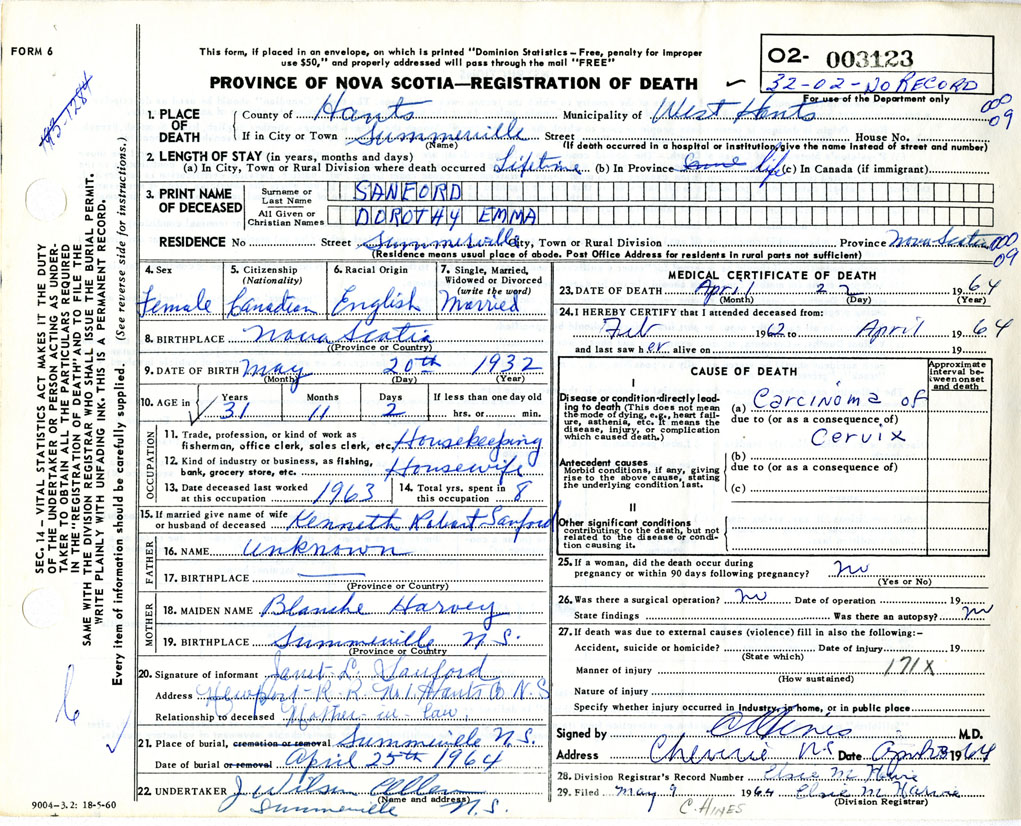 FORM 6
This form, if placed in an envelope, on which is printed "Dominion Statistics – Free, penalty for improper
use $50," and properly addressed will pass through the mail "FREE"
PROVINCE OF NOVA SCOTIA—REGISTRATION OF DEATH
O2- 003123
32-02-No RECORD
For use of the Department only
000
09
1. PLACE OF DEATH
County of Hants Municipality of West Hants
If in City or Town Summerville Street House No.
(Name) (If death occurred in a hospital or institution, give the name instead of street and number)
2. LENGTH OF STAY (in years, months and days)
(a) In City, Town or Rural Division where death occurred Lifetime (b) In Province life (c) In Canada (if immigrant)
3. PRINT NAME OF DECEASED
Surname or Last Name SANFORD
All Given or Christian Names DOROTHY EMMA
RESIDENCE No Street Summerville City, Town or Rural Division Province Nova Scotia
000
09
(Residence means usual place of abode. Post Office Address for residents in rural parts not sufficient)
4. Sex Female
5. Citizenship (Nationality) Canadian
6. Racial Origin English
7. Single, Married, Widowed or Divorced (write the word) Married
8. BIRTHPLACE Nova Scotia
(Province or Country)
9. DATE OF BIRTH May 20th 1932
(Month) (Day) (Year)
10. AGE in Years Months Days If less than one day old
31 11 2 hrs. or min.
OCCUPATION
11. Trade, profession, or kind of work as fisherman, office clerk, sales clerk, etc. Housekeeping
12. Kind of industry or business, as fishing, bank, grocery store, etc. Housewife
13. Date deceased last worked at this occupation 1963
14. Total yrs. spent in this occupation 8
15. If married give name of wife or husband of deceased Kenneth Robert Sanford
FATHER
16. NAME Unknown
17. BIRTHPLACE
(Province or Country)
MOTHER
18. MAIDEN NAME Blanche Harvey
19. BIRTHPLACE Summerville N.S.
(Province or Country)
20. Signature of informant Janet L. Sanford
Address Newport R.R. No 1 Hants Co N.S
Relationship to deceased Mother-in-law
21. Place of burial, cremation or removal Summerville N.S.
Date of burial or removal April 25th 1964
22. UNDERTAKER J Wilson Allen
(Name and address)
Summerville N.S.
9004-3.2: 18-5-60
MEDICAL CERTIFICATE OF DEATH
23. DATE OF DEATH April 22 1964
(Month) (Day) (Year)
24. I HEREBY CERTIFY that I attended deceased from:
Feb 1962 to April 1964
and last saw her alive on 19
CAUSE OF DEATH
Approximate interval between onset and death
I
Disease or condition directly leading to death (This does not mean the mode of dying, e.g., heart failure, asthenia, etc. It means the disease, injury, or complication which caused death.)
(a) Carcinoma of
due to (or as a consequence of)
Cervix
Antecedent causes
Morbid conditions, if any, giving rise to the above cause, stating the underlying condition last.
(b)
due to (or as a consequence of)
(c)
II
Other significant conditions contributing to the death, but not related to the disease or condition causing it.
25. If a woman, did the death occur during pregnancy or within 90 days following pregnancy? no
(Yes or No)
26. Was there a surgical operation? no Date of operation 19
State findings Was there an autopsy? no
27. If death was due to external causes (violence) fill in also the following:—
Accident, suicide or homicide? Date of injury 19
(State which)
Manner of injury 171X
(How sustained)
Nature of injury
Specify whether injury occurred in industry, in home, or in public place
Signed by M.D.
Address N.S. Date April 1964
28. Division Registrar's Record Number Elsie M Harvie
29. Filed May 9 1964 Elsie M Harvie
(Division Registrar)
C. HINES
SEC. 14 – VITAL STATISTICS ACT MAKES IT THE DUTY
OF THE UNDERTAKER OR PERSON ACTING AS UNDER-
TAKER TO OBTAIN ALL THE PARTICULARS REQUIRED
IN THE "REGISTRATION OF DEATH" AND TO FILE THE
SAME WITH THE DIVISION REGISTRAR WHO SHALL ISSUE THE BURIAL PERMIT.
WRITE PLAINLY WITH UNFADING INK. THIS IS A PERMANENT RECORD.
Every item of information should be carefully supplied. (See reverse side for instructions.)